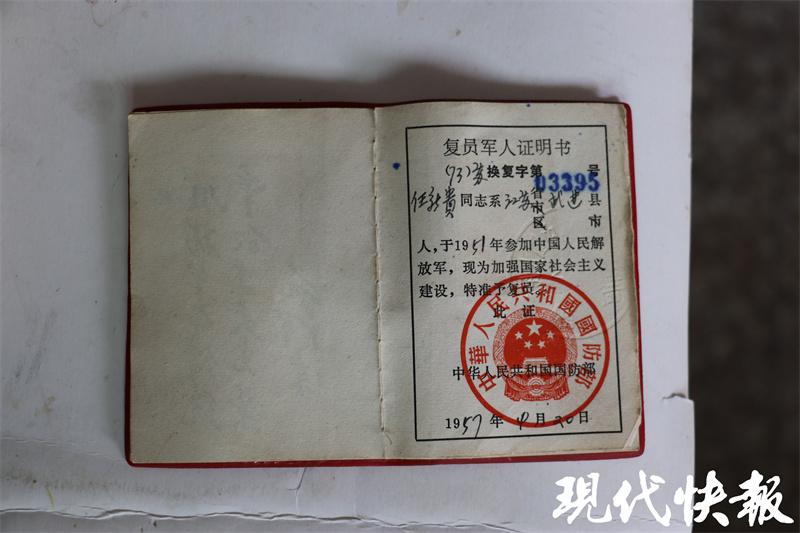 复员军人证明书
(93)苏换复字第03395号
任新贵同志系江苏省市区武进县市
人，于1951年参加中国人民解
放军，现为加强国家社会主义
建设，特准予复员。
此证
中華人民共和國國防部
中华人民共和国国防部
1957年4月20日
现代快报